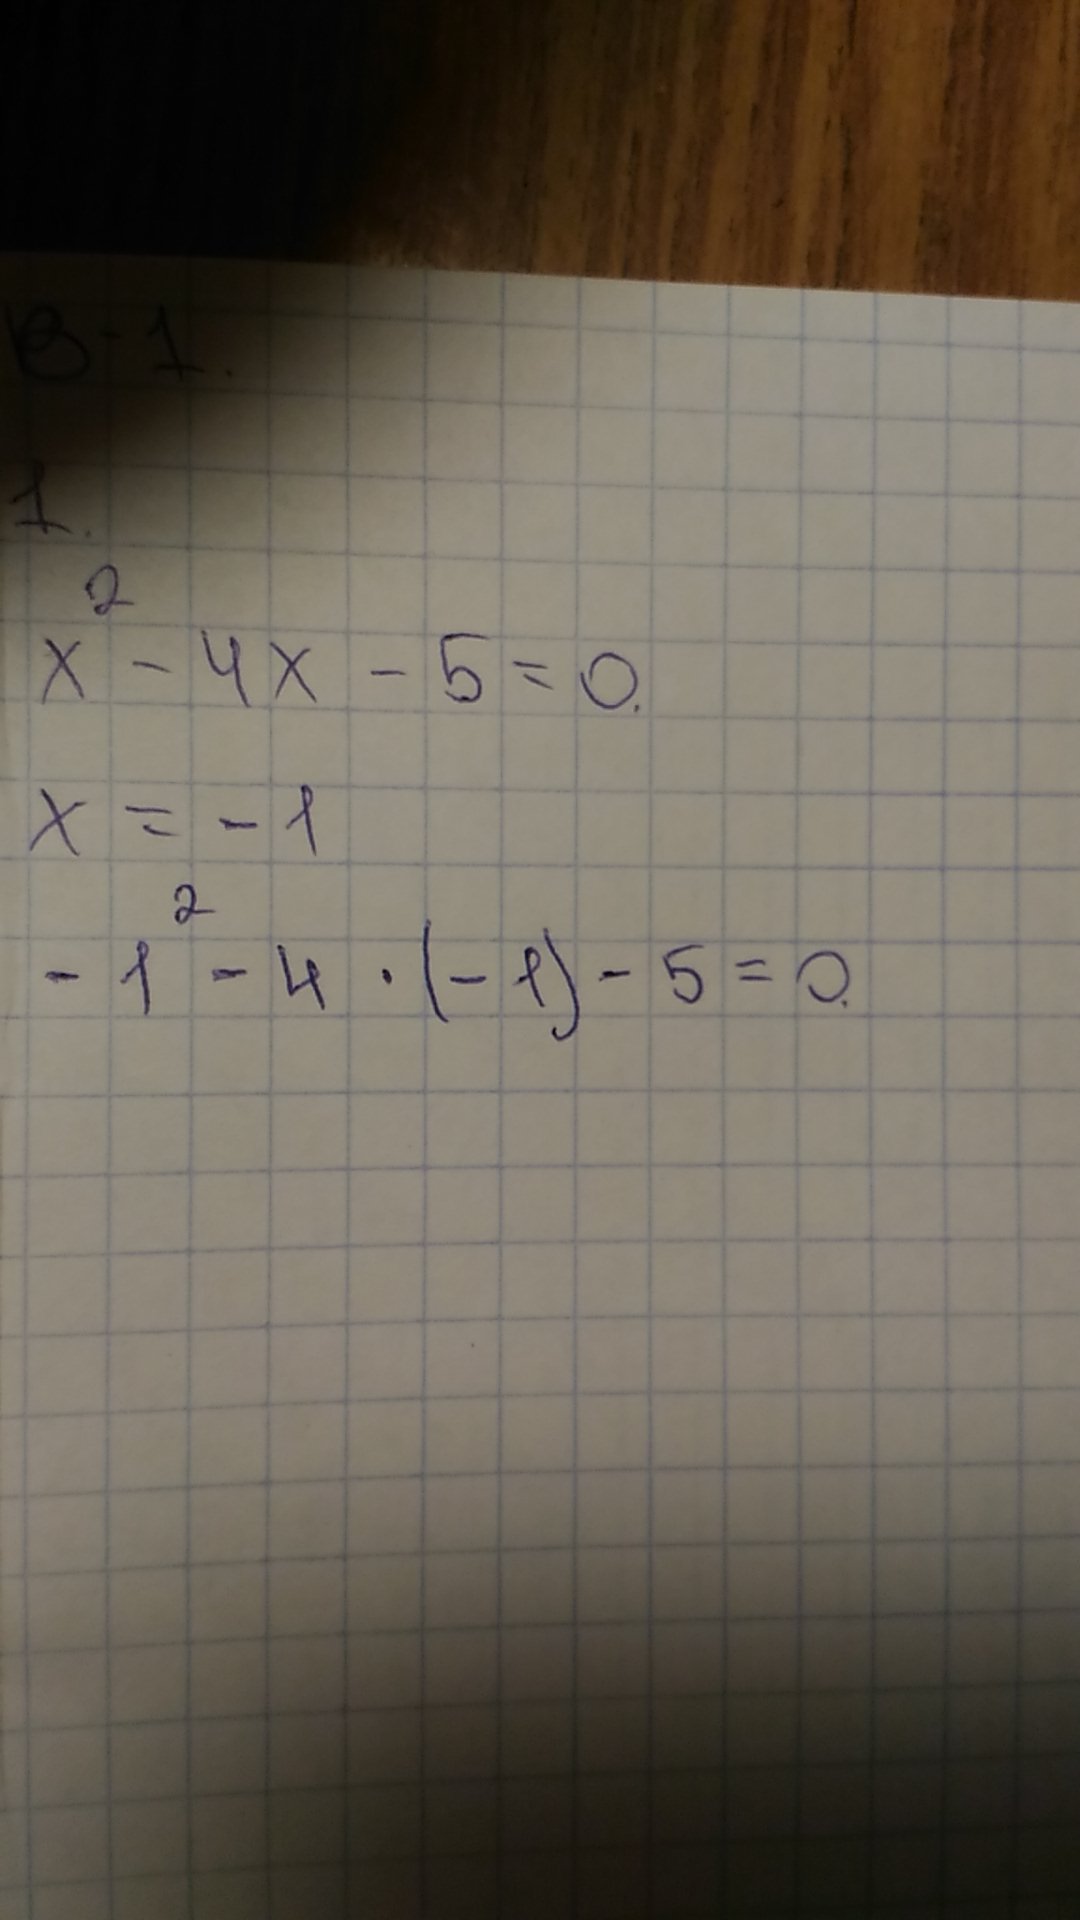 В-1.
1.
x² - 4x - 5 = 0.
x = - 1
- 1² - 4 · (- 1) - 5 = 0.